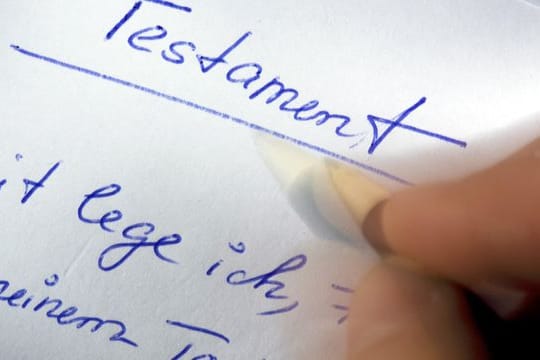 Testament
it lege ich,
einem To